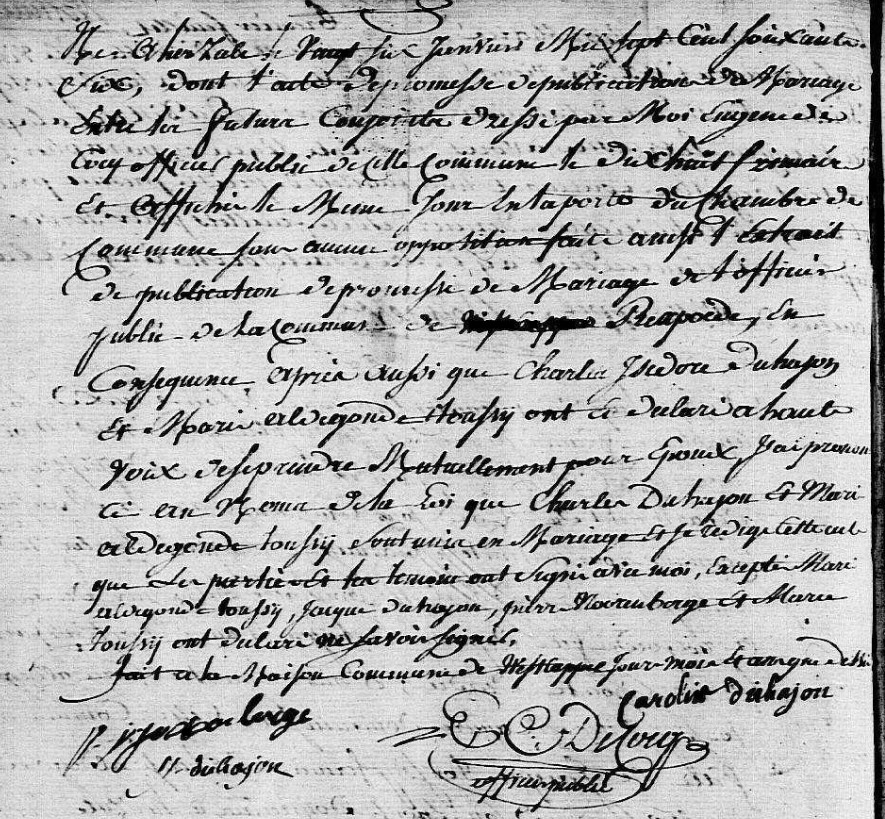 le vingt six Janvier Mil sept Cent soixante
Six, dont l'acte de promesse de publication de Mariage
Entre les futurs Conjoints dressé par Moi Eugene De
Cocq officier public de Celle Commune le dix huit frimaire
Et affichée le Meme Jour En la porte du Chambre de
Commune sans aucune opposition faite ainsi l'Extrait
de publication de promesse de Mariage de l'officier
public de la Commune de Rexpoëde, En
Consequence après aussi que Charles Isidore duhajon
Et Marie aldegonde toussÿ ont declaré a haute
voix de se prendre Mutuellement pour Epoux, J'ai pronon
cé au Nom de la loi que Charles Duhajon et Marie
aldegonde toussÿ sont unis en Mariage Et je redige Cette
que les parties Et les temoins ont signé avec moi, Excepté Marie
aldegonde toussÿ, Jacque duhajon, pierre Et Marie
toussÿ ont declaré ne savoir signer,
fait a la Maison Commune de Westcappel Jour mois Et an que dessus
Carolus duhajon
E C: De Cocq
duhajon
officier public